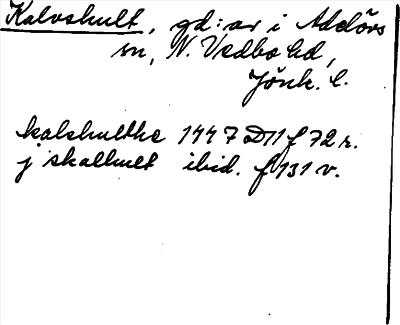 Kalvshult, gd:ar i Adelövs
sn, N. Vedbo hd,
Jönk. l.
kalshulthe 1447 D11 f 72 r.
j skalhult ibid. f 131 v.